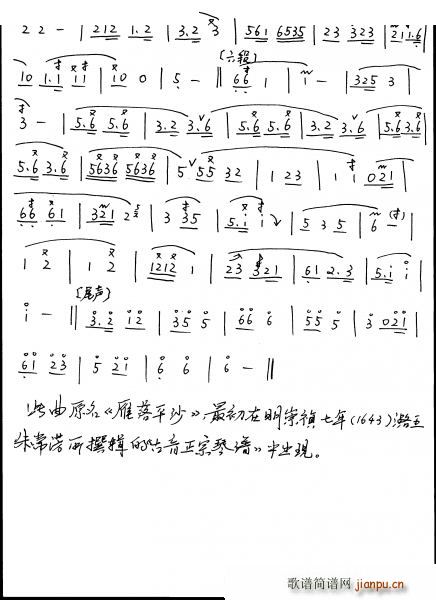 2 2 - | 212 1.2 | 3.2 3 | 561 6535 | 23 323 | 21 1.6
(六段)
10 1.1 11 | 10 0 | 5 - || 66 1 | 1 - | 325 3 |
3 - | 5.6 5.6 | 3.2 3.6 | 5.6 5.6 | 3.2 3.6 | 5.6 3.6 |
5.6 3.6 | 5636 5636 | 5 55 32 | 1 23 | 1 1 021 |
66 61 | 321 2 | 3 35 | 5.i i | 5 3 5 | 6 -
1 2 | 1 2 | 1212 1 | 23 321 | 61 2.3 | 5.i i |
[尾声]
i - || 3.2 12 | 35 5 | 66 6 | 55 5 | 3 021 |
61 23 | 5 21 | 6 6 | 6 - ||
此曲原名《雁落平沙》,最初在明崇祯七年(1643)潞王
朱常淓所撰辑的《古音正宗琴谱》中出现。
歌谱简谱网
jianpu.cn